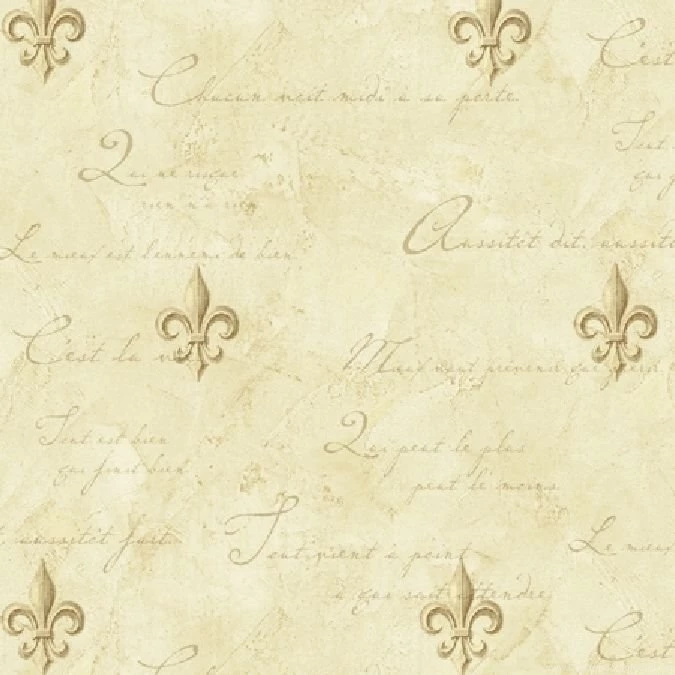 C'est
Chacun voit midi à sa porte
Tout
qui f
Qui ne risque
rien n'a rien
Aussitôt dit, aussitô
Le mieux est l'ennemi de bien
C'est la v
Mieux vaut prévenir que guérir
Tout est bien
qui finit bien
Qui peut le plus
peut le moins
t, aussitôt fait
Tout vient à point
à qui sait attendre
Le mieux
C'est
C